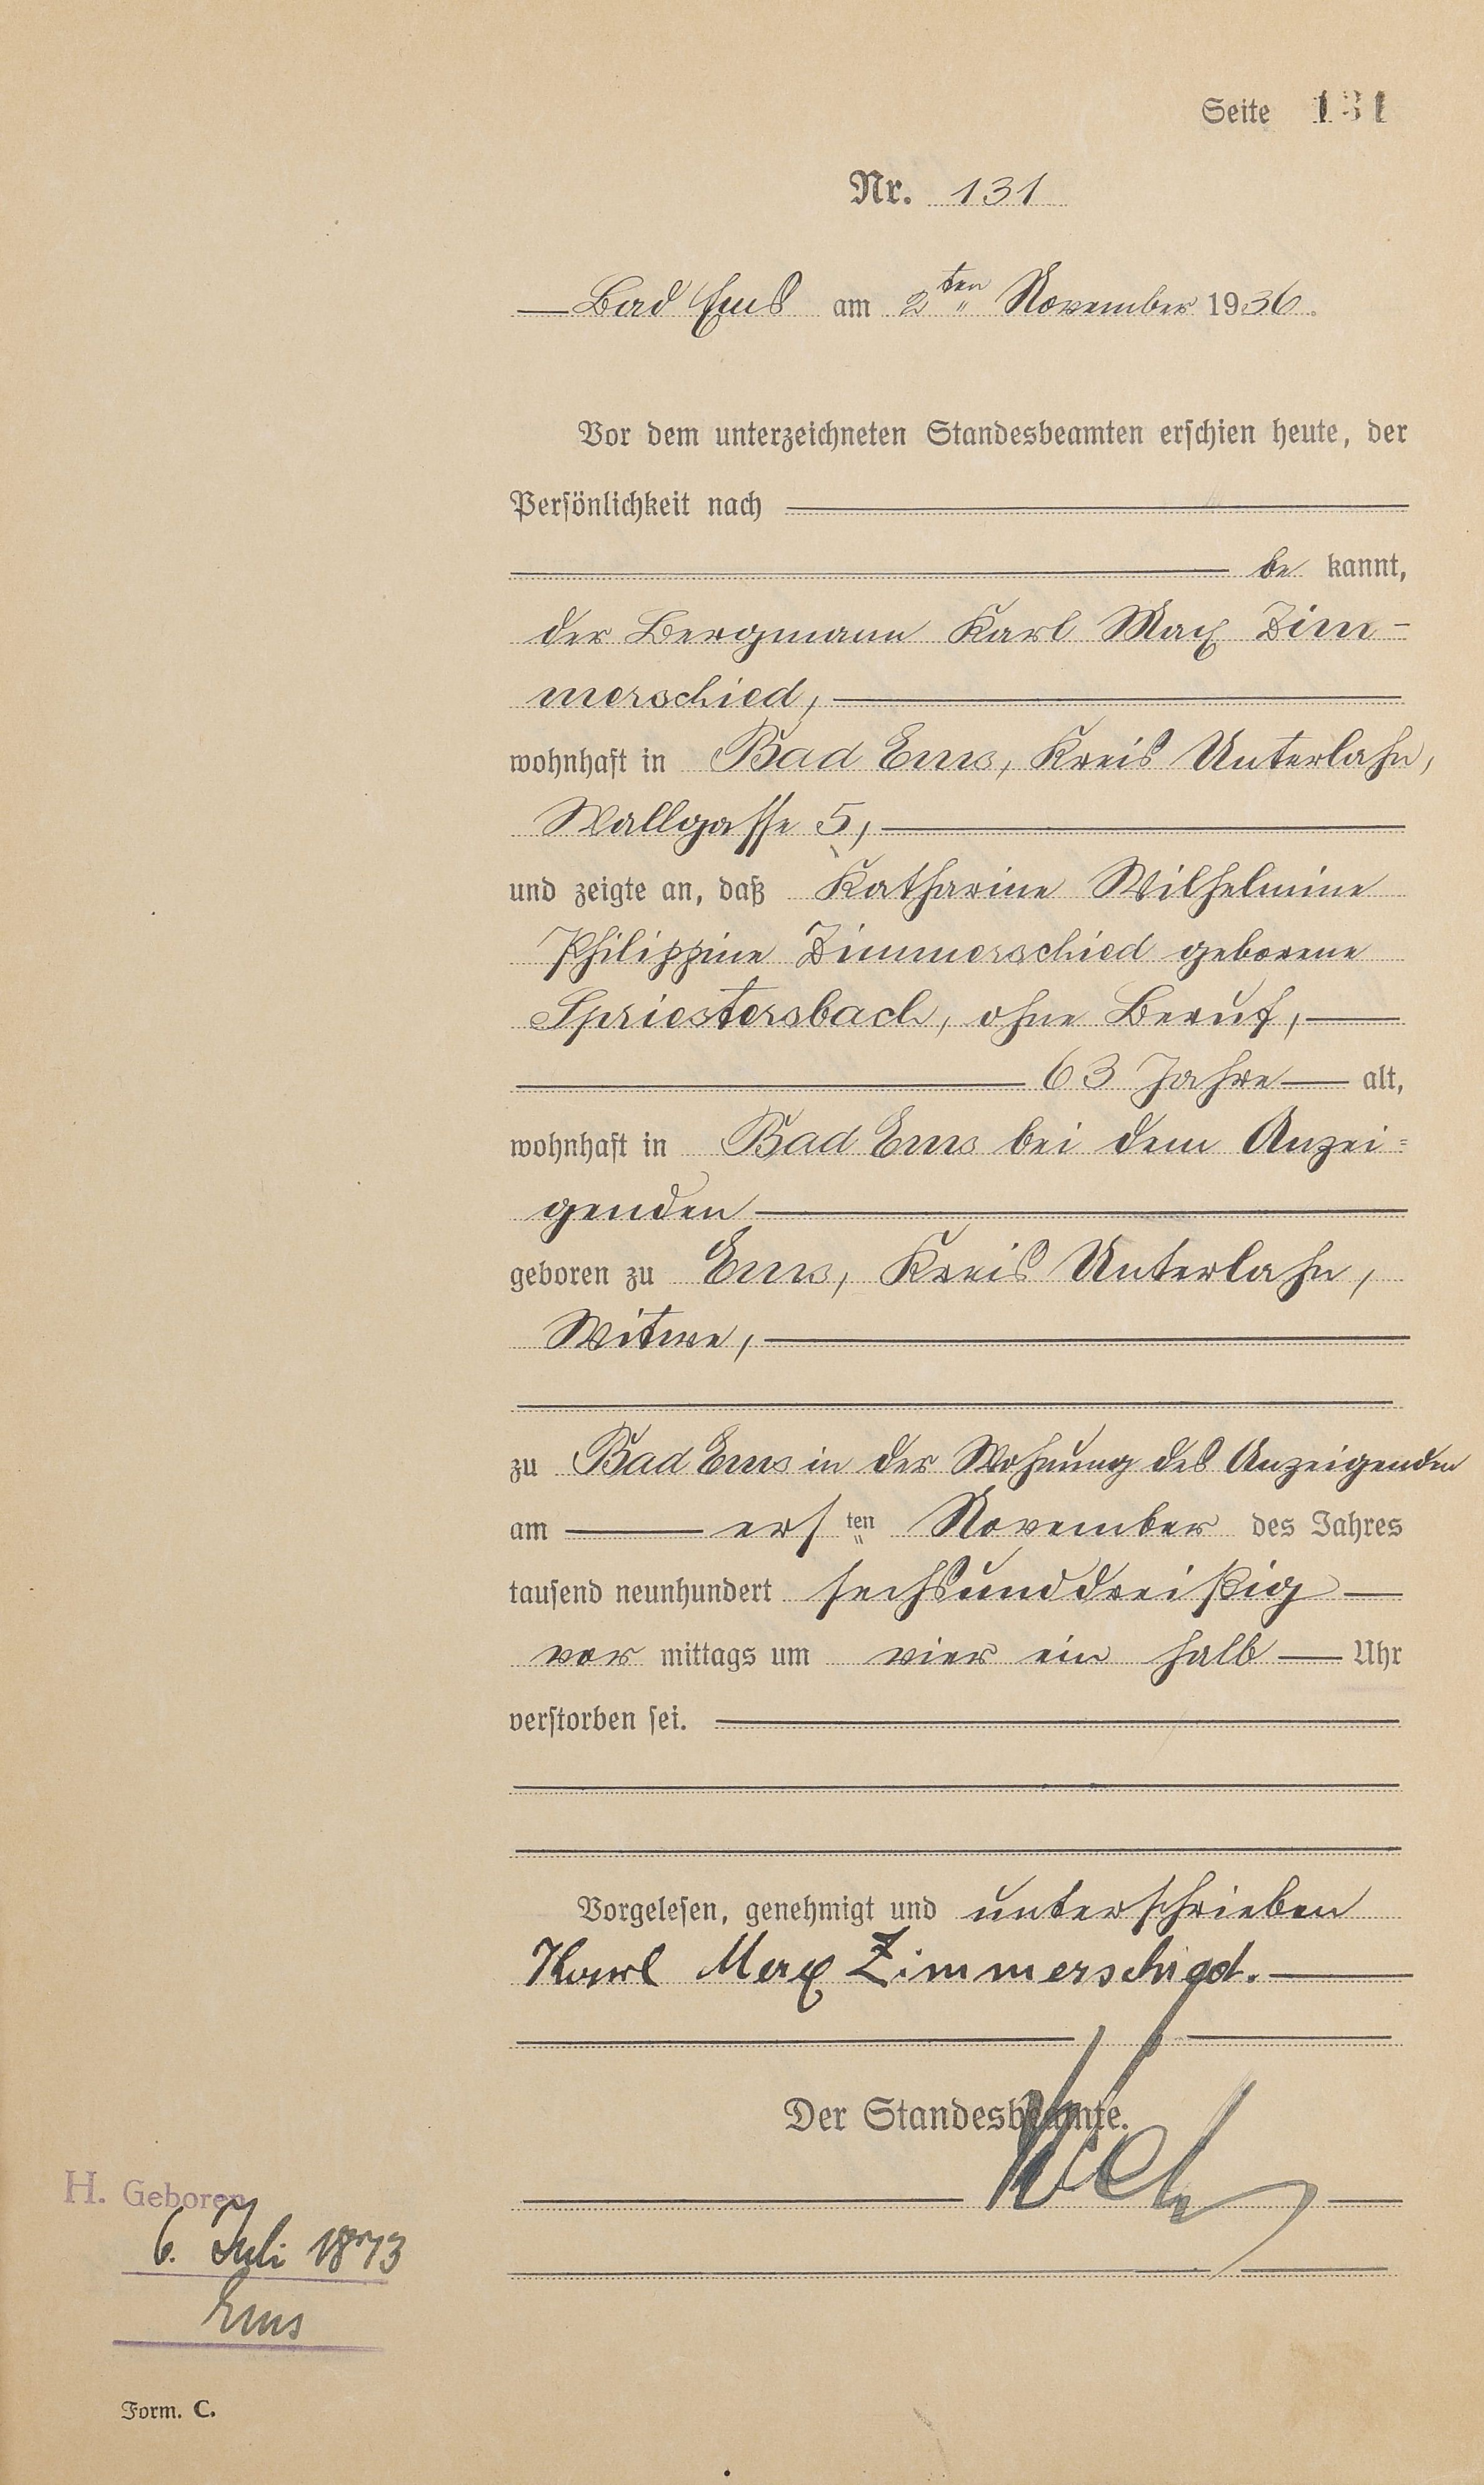 Seite 131
Nr. 131
Bad Ems am 2ten November 1936.
Vor dem unterzeichneten Standesbeamten erschien heute, der
Persönlichkeit nach
be kannt,
der Bergmann Karl Max Zim-
merschied,
wohnhaft in Bad Ems, Kreis Unterlahn,
Wallgasse 5,
und zeigte an, daß Katharine Wilhelmine
Philippine Zimmerschied geborene
Spriestersbach, ohne Beruf,
63 Jahre alt,
wohnhaft in Bad Ems bei dem Anzei=
genden
geboren zu Ems, Kreis Unterlahn,
Witwe,
zu Bad Ems in der Wohnung des Anzeigenden
am ersten November des Jahres
tausend neunhundert sechsunddreißig
vor mittags um vier ein halb Uhr
verstorben sei.
Vorgelesen, genehmigt und unterschrieben
Karl Max Zimmerschied.
Der Standesbeamte.
H. Geboren
6. Juli 1873
Ems
Form. C.